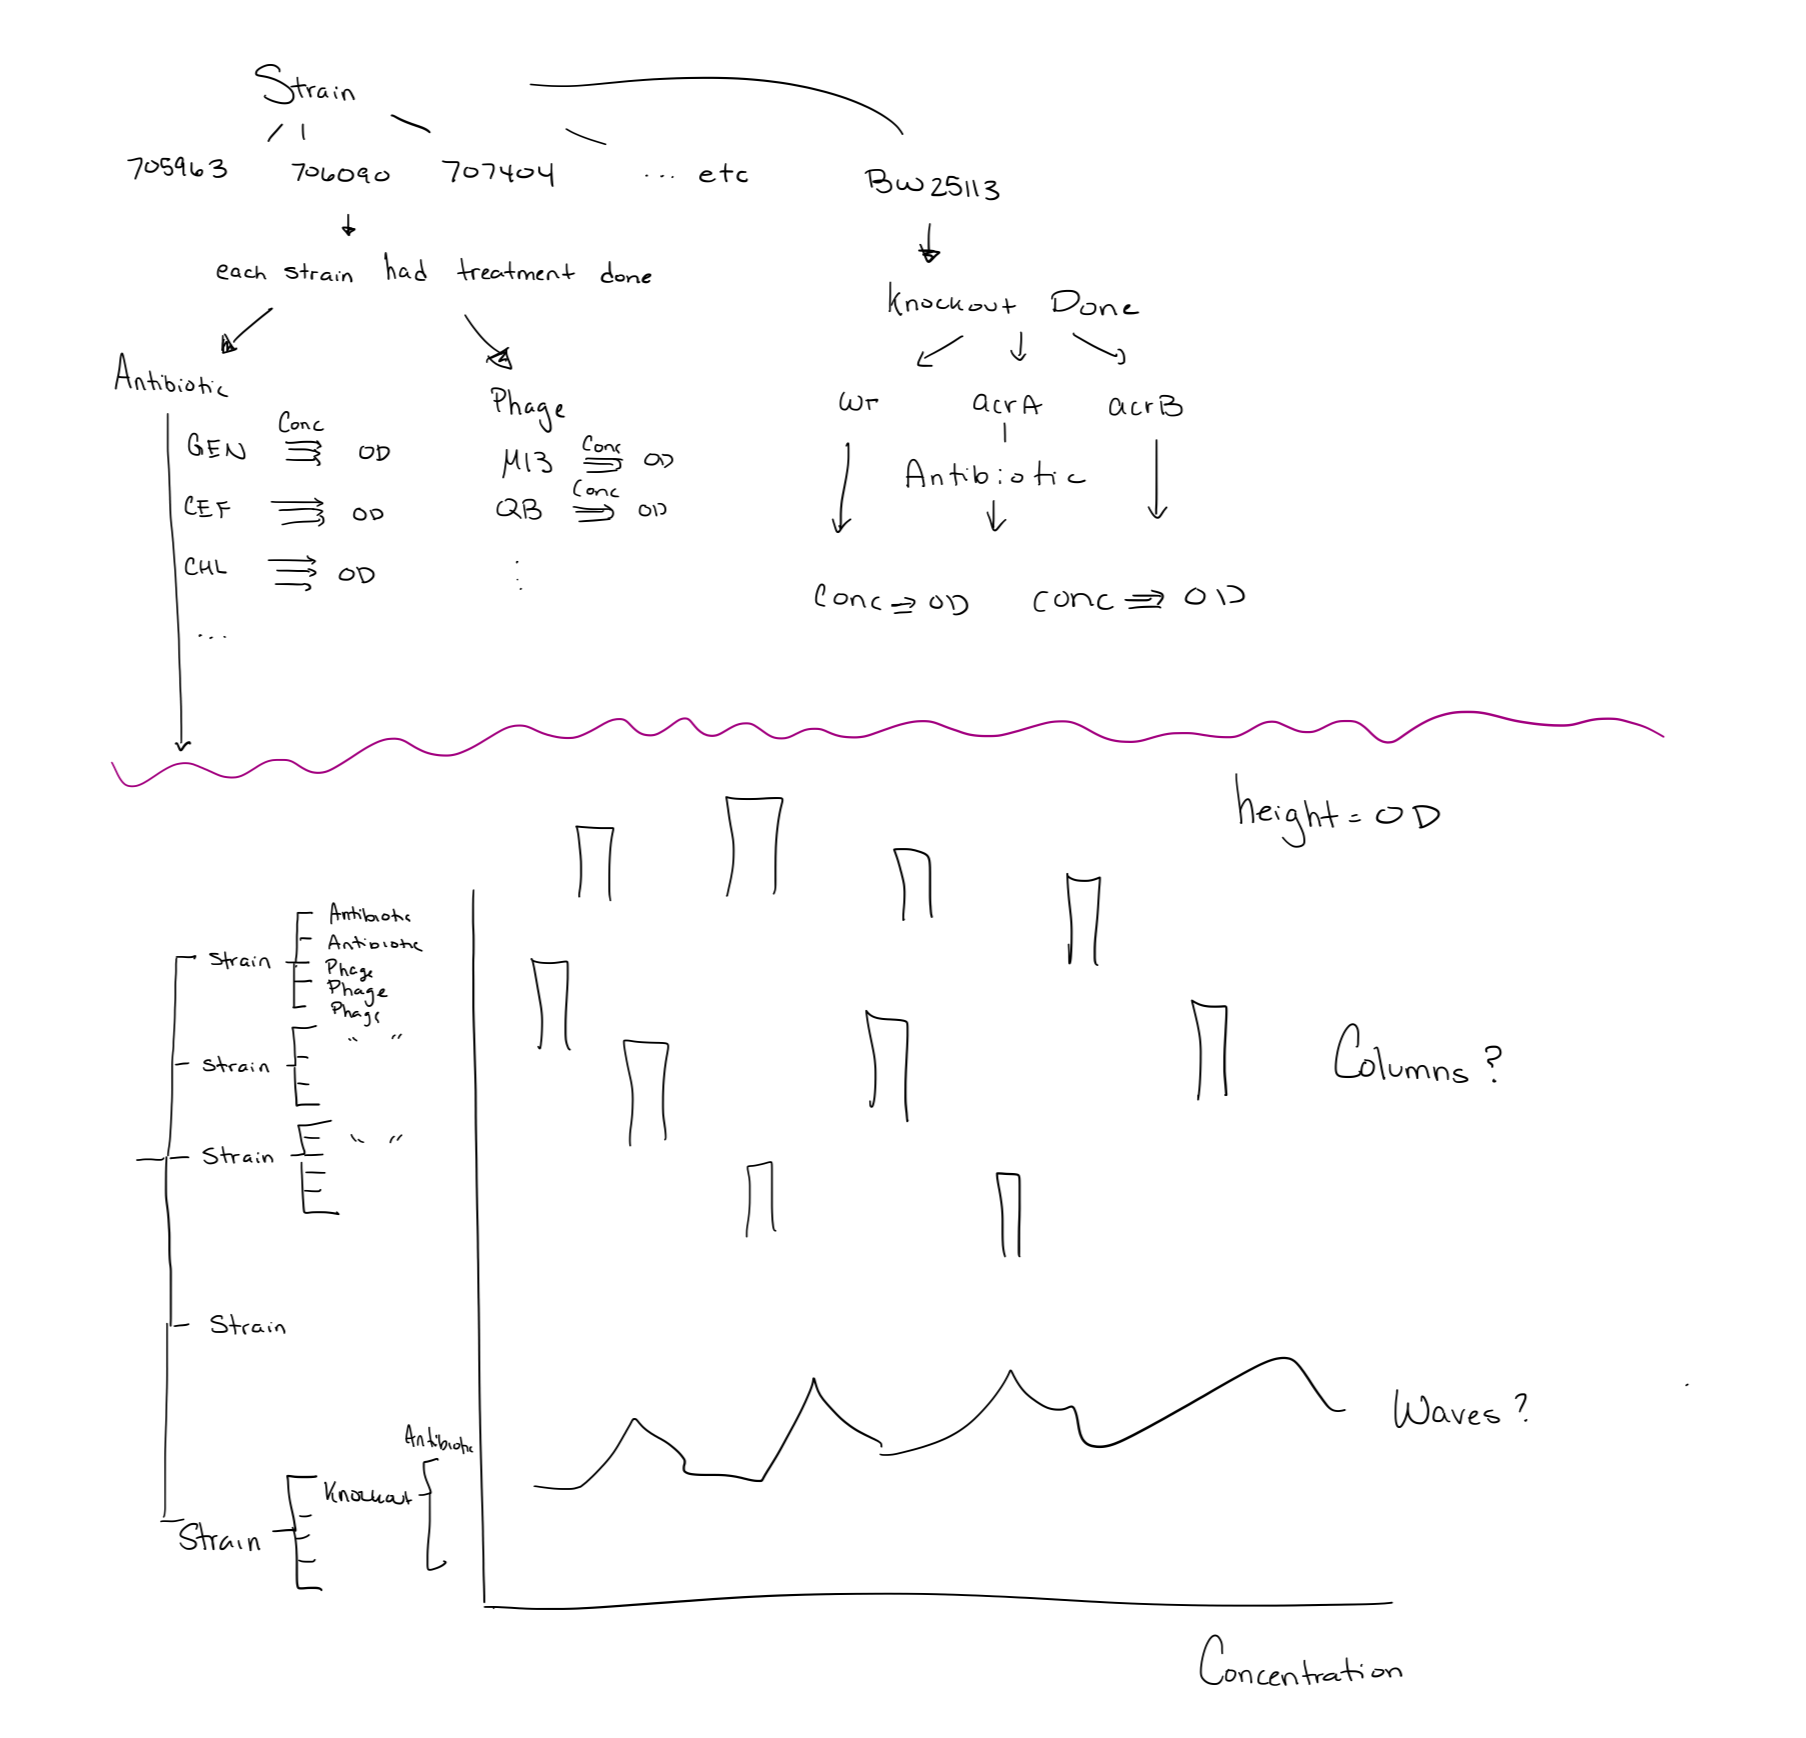 Strain
705963 706090 707404 ... etc BW25113
each strain had treatment done
Knockout Done
Antibiotic
Phage
WT acrA acrB
GEN Conc OD
M13 Conc OD
Antibiotic
CEF OD
QB Conc OD
CHL OD
...
Conc OD Conc OD
height = OD
Antibiotic
Antibiotic
Strain Phage
Phage
Phage
Strain " "
Columns ?
Strain " "
Strain
Waves ?
Antibiotic
Knockout
Strain
Concentration